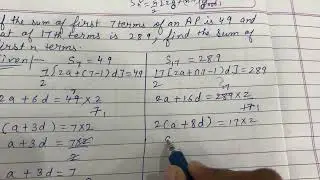 the sum of first 7 terms of an AP is 49 and
at of 17th terms is 289, find the sum of
first n terms.
Given:- S₇ = 49 S₁₇ = 289
7/2 [2a + (7-1)d] = 49 17/2 [2a + (17-1)d] = 289
2a + 6d = 49 × 2 / 7 2a + 16d = 289 × 2 / 17
(a + 3d) = 7 × 2 2(a + 8d) = 17 × 2
a + 3d = 7 × 2 / 2
a + 3d = 7